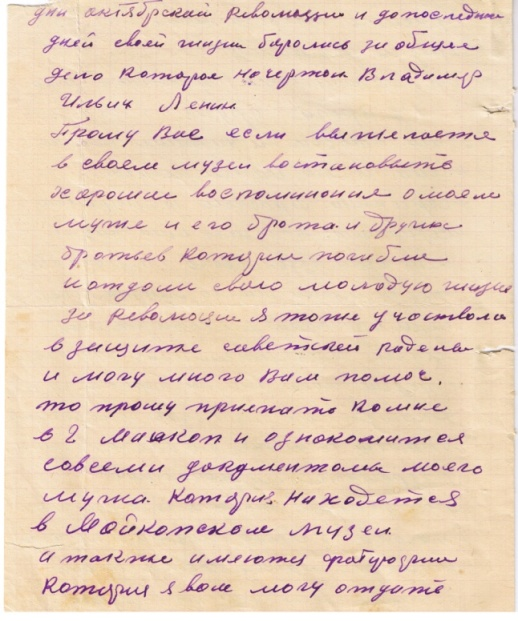 дни октябрской революции и до последних
дней своей жизни боролись за общее
дело которое начертал Владимер
Ильич Ленин
Прошу Вас если вы желаете
в своем музеи востановить
хорошии воспоминания о моем
муже и его брата и других
братьев которые погибли
и отдали свою молодую жизнь
за революции я тоже участвовала
в защите советской радены
и могу много Вам помоч.
то прошу приехать ко мне
в г Майкоп и однокомится
совсеми документами моего
мужа. Которые находется
в Майкопском музеи.
и также имеются фотографии
которые я вам могу отдать